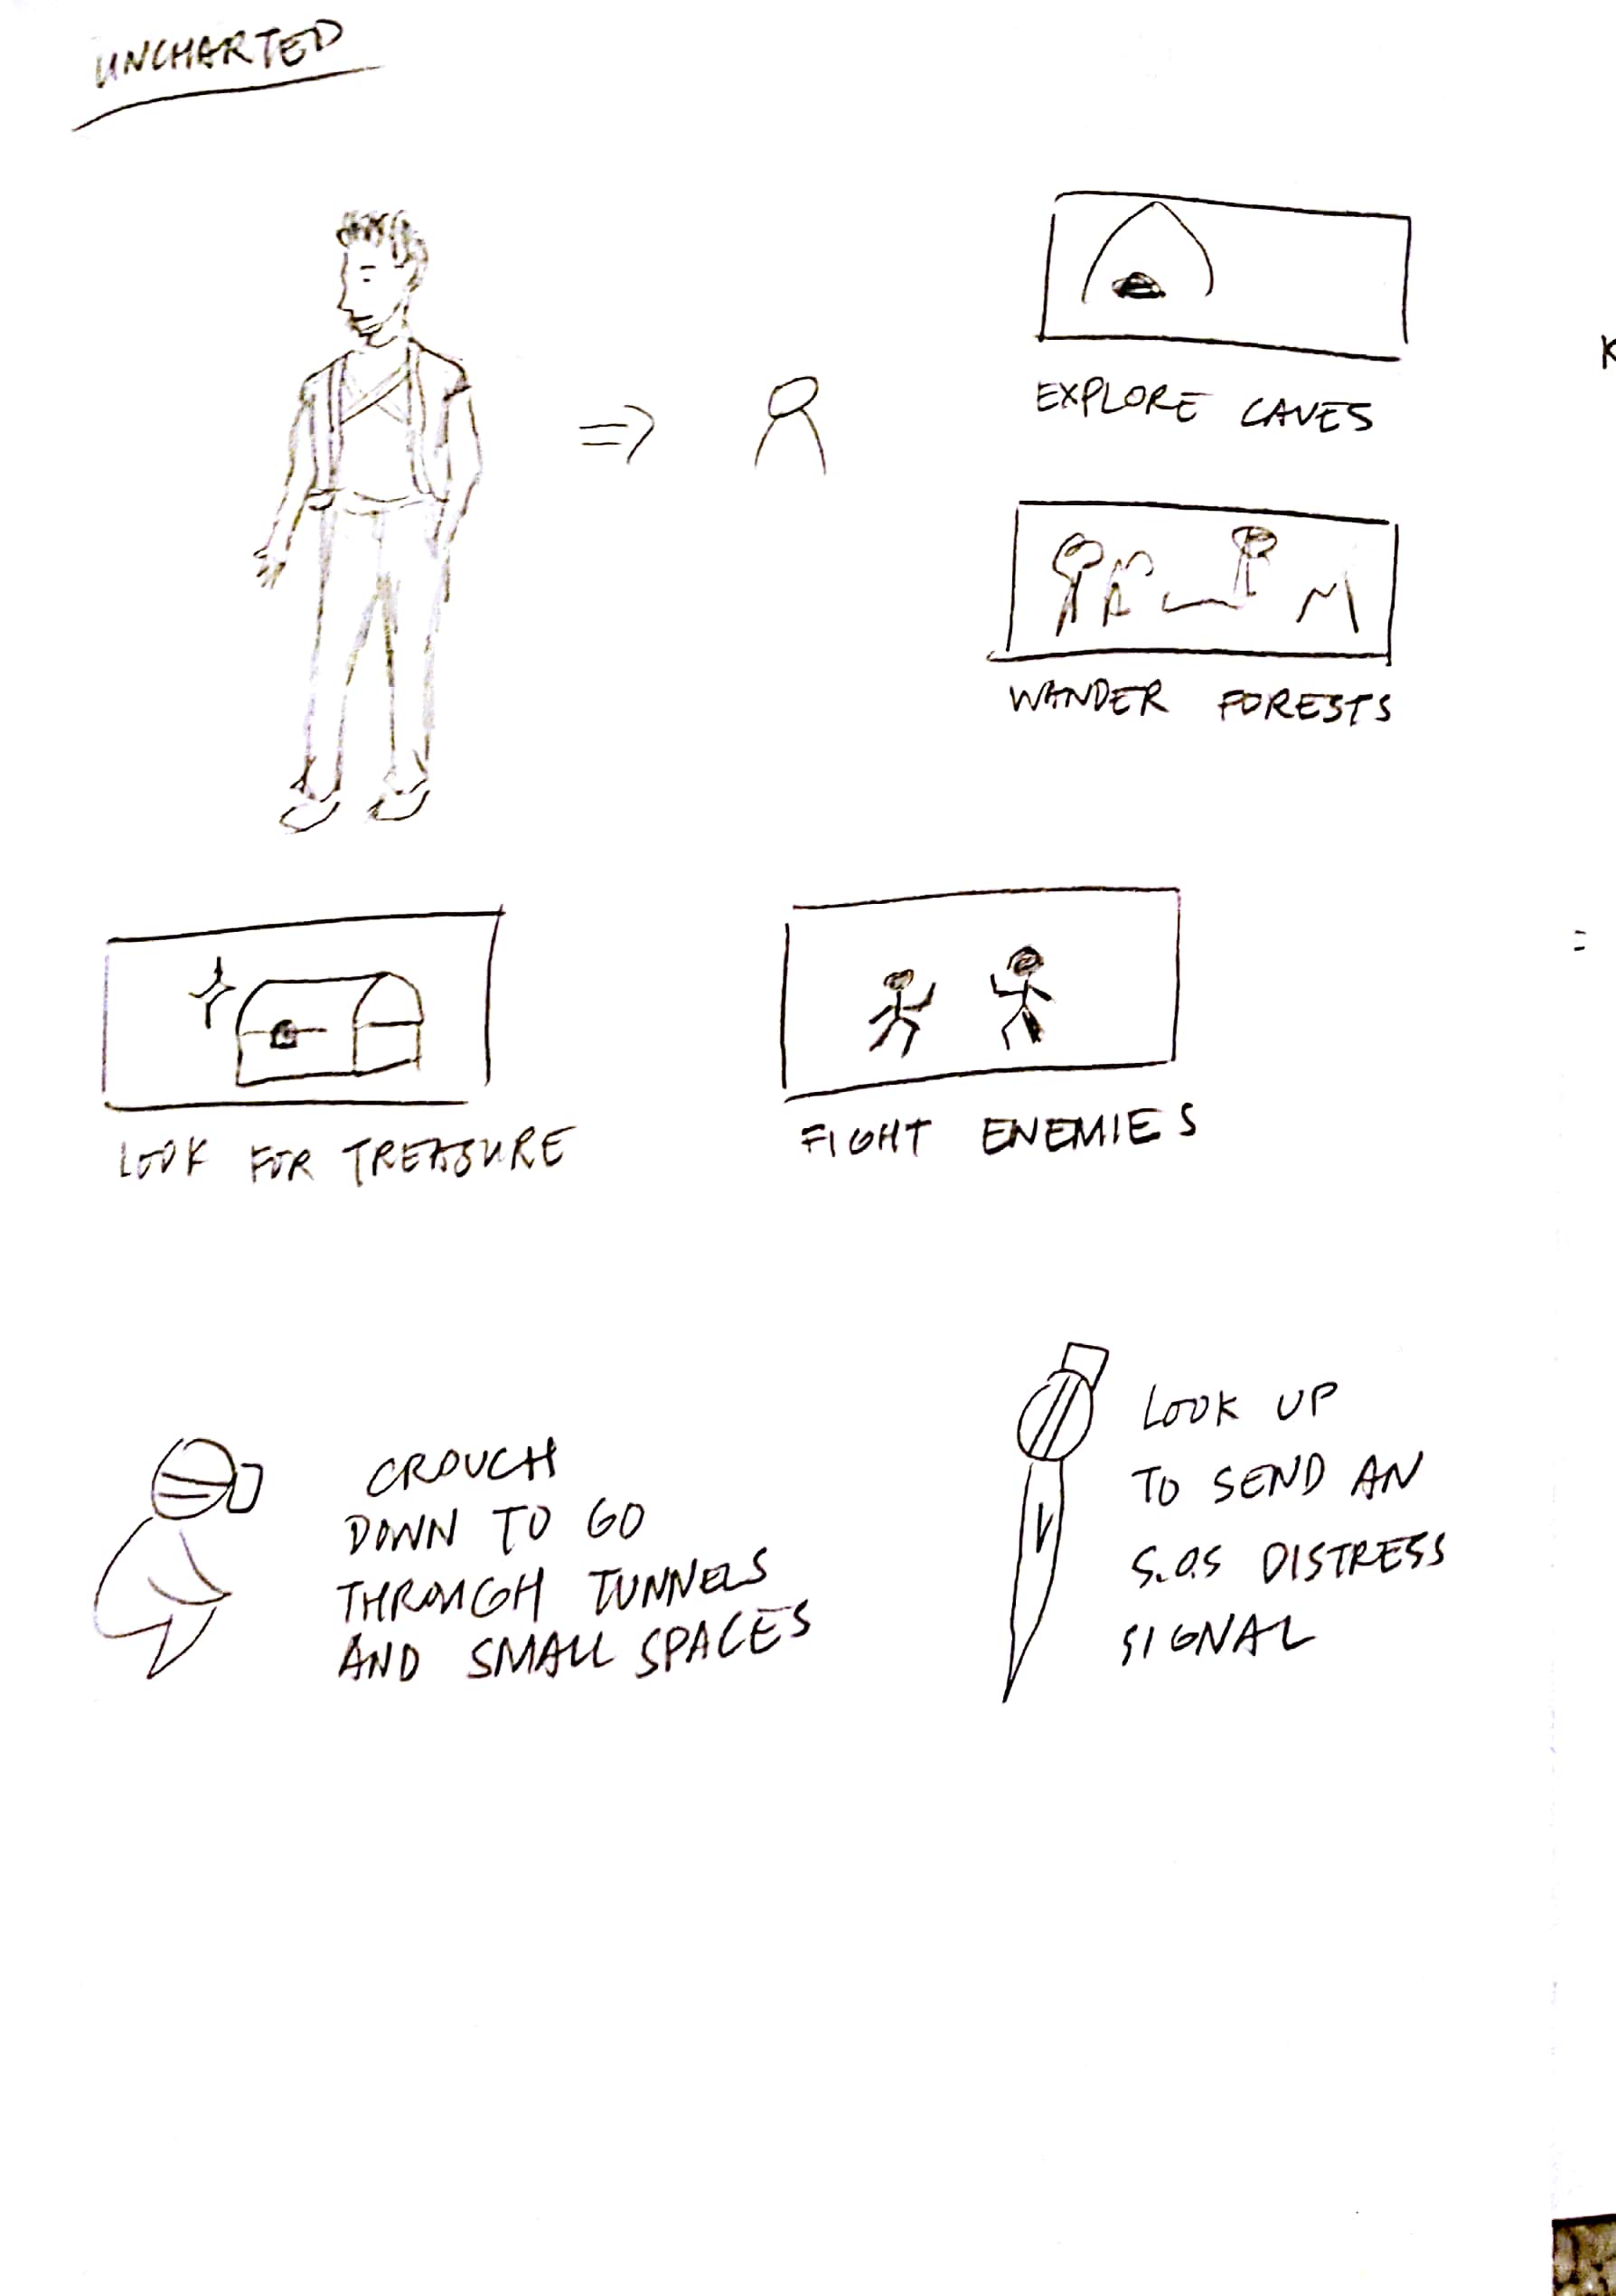 UNCHARTED
EXPLORE CAVES
WANDER FORESTS
LOOK FOR TREASURE
FIGHT ENEMIES
CROUCH
DOWN TO GO
THROUGH TUNNELS
AND SMALL SPACES
LOOK UP
TO SEND AN
S.O.S DISTRESS
SIGNAL
K